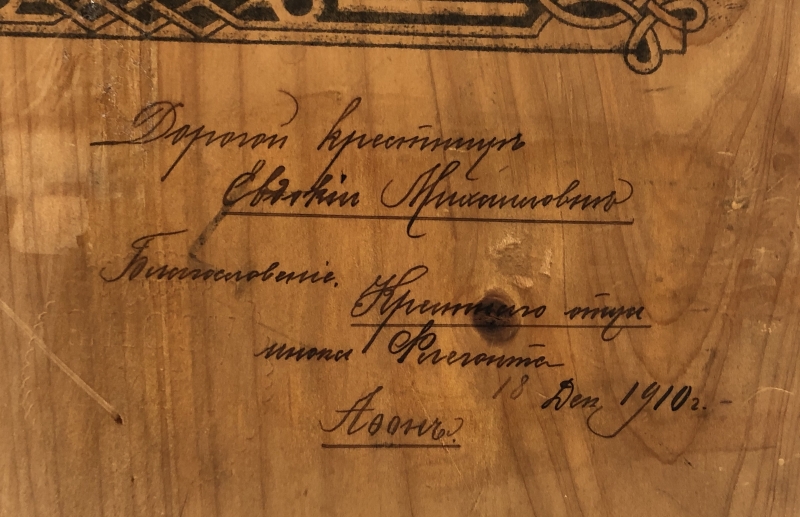 Дорогой крестницѣ
Евдокіи Михаиловнѣ
Благословеніе.
Крестнаго отца
инока Флегонта
18 Дек, 1910 г.
Аѳонъ.